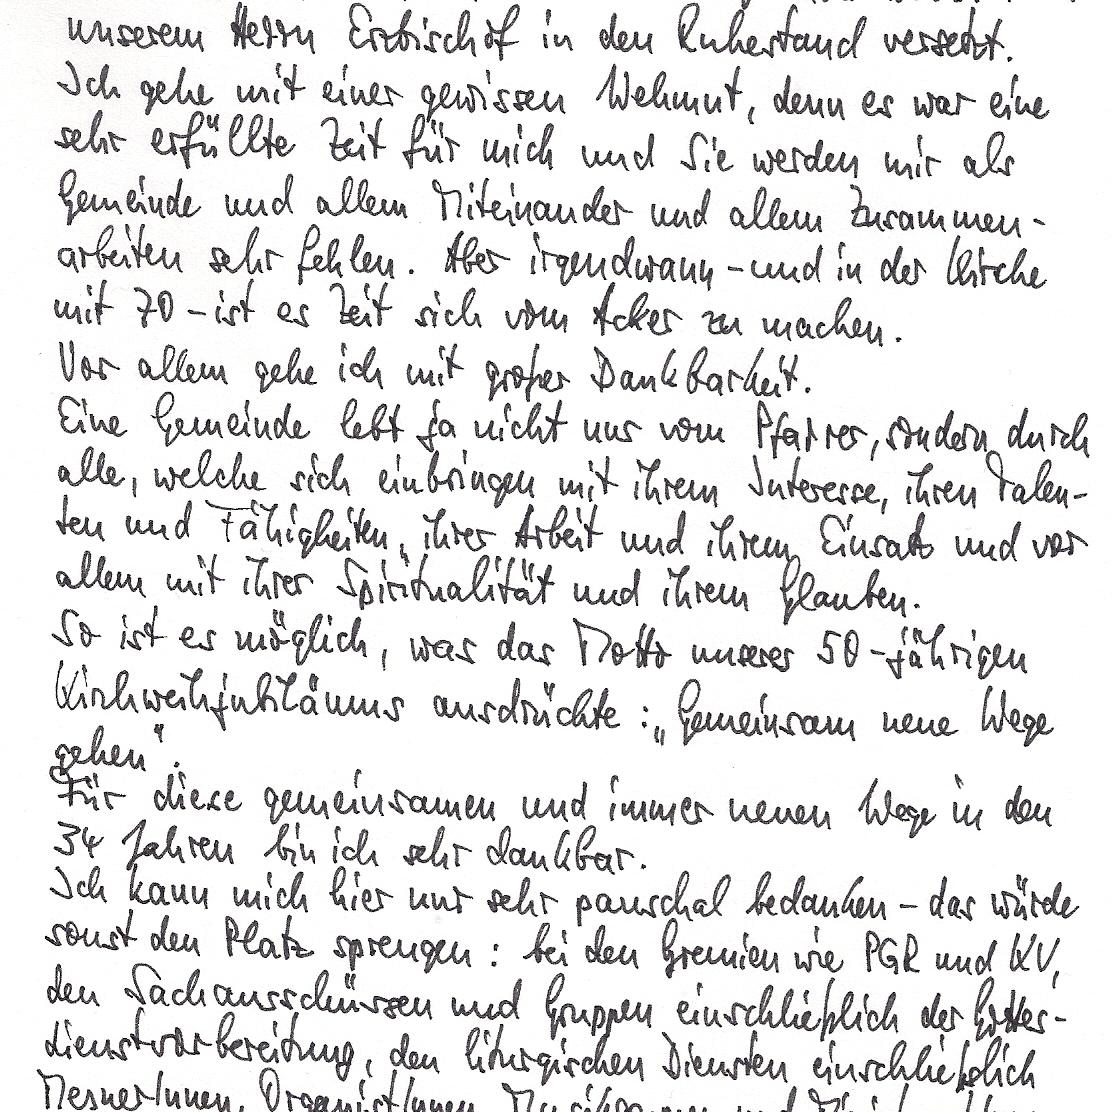 unserem Herrn Erzbischof in den Ruhestand versetzt.
Ich gehe mit einer gewissen Wehmut, denn es war eine
sehr erfüllte Zeit für mich und Sie werden mir als
Gemeinde und allem Miteinander und allem Zusammen-
arbeiten sehr fehlen. Aber irgendwann - und in der Kirche
mit 70 - ist es Zeit sich vom Acker zu machen.
Vor allem gehe ich mit großer Dankbarkeit.
Eine Gemeinde lebt ja nicht nur vom Pfarrer, sondern durch
alle, welche sich einbringen mit ihrem Interesse, ihren Talen-
ten und Fähigkeiten, ihrer Arbeit und ihrem Einsatz und vor
allem mit ihrer Spiritualität und ihrem Glauben.
So ist es möglich, was das Motto unseres 50-jährigen
Kirchweihjubiläums ausdrückte: „Gemeinsam neue Wege
gehen".
Für diese gemeinsamen und immer neuen Wege in den
34 Jahren bin ich sehr dankbar.
Ich kann mich hier nur sehr pauschal bedanken - das würde
sonst den Platz sprengen: bei den Gremien wie PGR und KV,
den Sachausschüssen und Gruppen einschließlich der Gottes-
dienstvorbereitung, den liturgischen Diensten einschließlich
MesnerInnen, OrganistInnen,